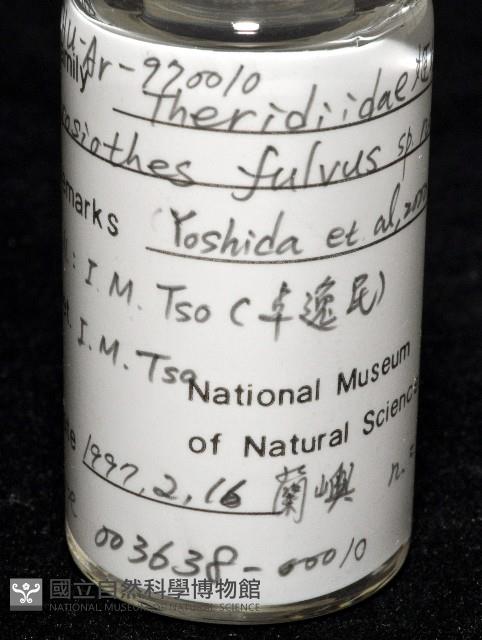 -Ar-970010
Family Theridiidae
fulvus sp.
Remarks Yoshida et al, 2000
: I.M. Tso (卓逸民)
et. I.M. Tso
National Museum
of Natural Science
Date 1997.2.16 蘭嶼 n.=
003638-00010
國立自然科學博物館
NATIONAL MUSEUM OF NATURAL SCIENCE